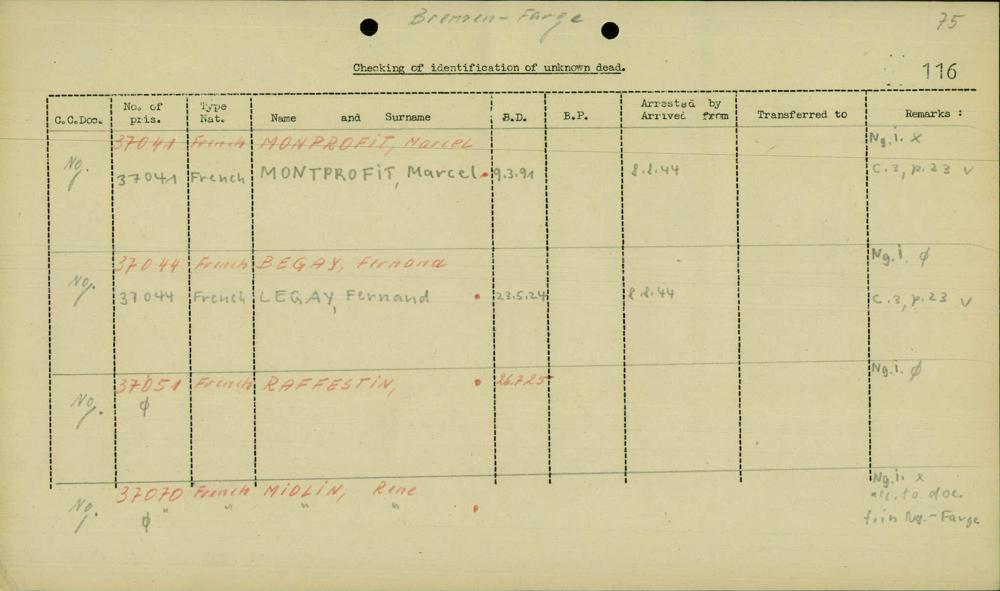 Bremen-Farge 75
Checking of identification of unknown dead. 116
C.C.Doc. No. of pris. Type Nat. Name and Surname B.D. B.P. Arrested by Arrived from Transferred to Remarks :
37041 French MONPROFIT, Marcel Ng.i. x
Ng. 37041 French MONTPROFIT, Marcel 9.3.91 8.8.44 C.3, p.23 v
37044 French BEGAY, Fernand Ng.i. ϕ
Ng. 37044 French LEGAY, Fernand 23.5.24 8.8.44 C.3, p.23 v
37051 French RAFFESTIN, 26.7.25 Ng.i. ϕ
Ng. ϕ
37070 French MIOLIN, Rene Ng.i. x
Ng. ϕ " " " " acc. to doc.
Ng.-Farge